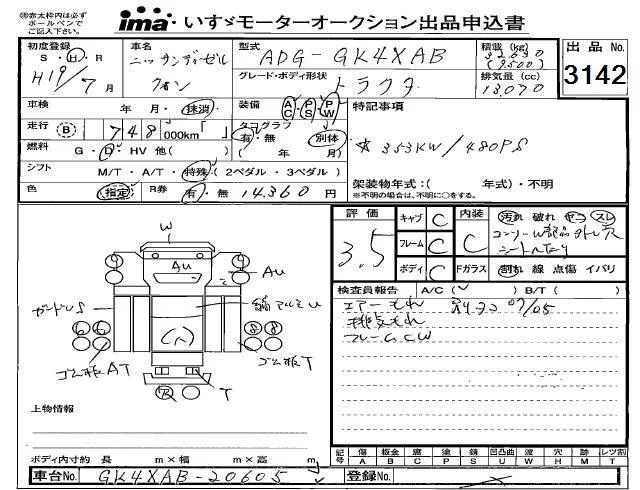 ㊟赤太枠内は必ず
ボールペンで
ご記入下さい。
ima いすゞモーターオークション出品申込書
初度登録 S・H・R H19/7月
車名 ニッサンディーゼル クオン
型式 ADG-GK4XAB
グレード・ボディ形状 トラクタ
積載 (kg) (9,500)
排気量 (cc) 13,070
出品 No. 3142
車検 年 月・抹消
装備 AC・PS・PW
特記事項
走行 B 748,000km「 」
タコグラフ 有・無 別体 ( 年 月)
☆ 353KW/480PS
燃料 G・D・HV 他( )
シフト M/T・A/T・特殊 (2ペダル・3ペダル)
架装物年式:( 年式)・不明
※不明の場合は、年式不明に○をする。
色 指定 R券 有・無 14,360 円
評価 3.5
キャブ C
フレーム C
ボディ C
内装 C
Fガラス
汚れ 破れ ヤニ スレ
割れ 線 点傷 イバリ
検査員報告 A/C( ) B/T( )
エアーもれ
排気もれ
フレームCW
W
Au
Au
ガードレS
縞アルミU
ゴム板AT
ゴム板T
T
上物情報
ボディ内寸約 長 m×幅 m×高 m
記号 傷A 板金B 腐C 塗P 錆S 凹凸曲U 波W 穴H 跡M レツ割T
車台No. GK4XAB-20605
登録No.